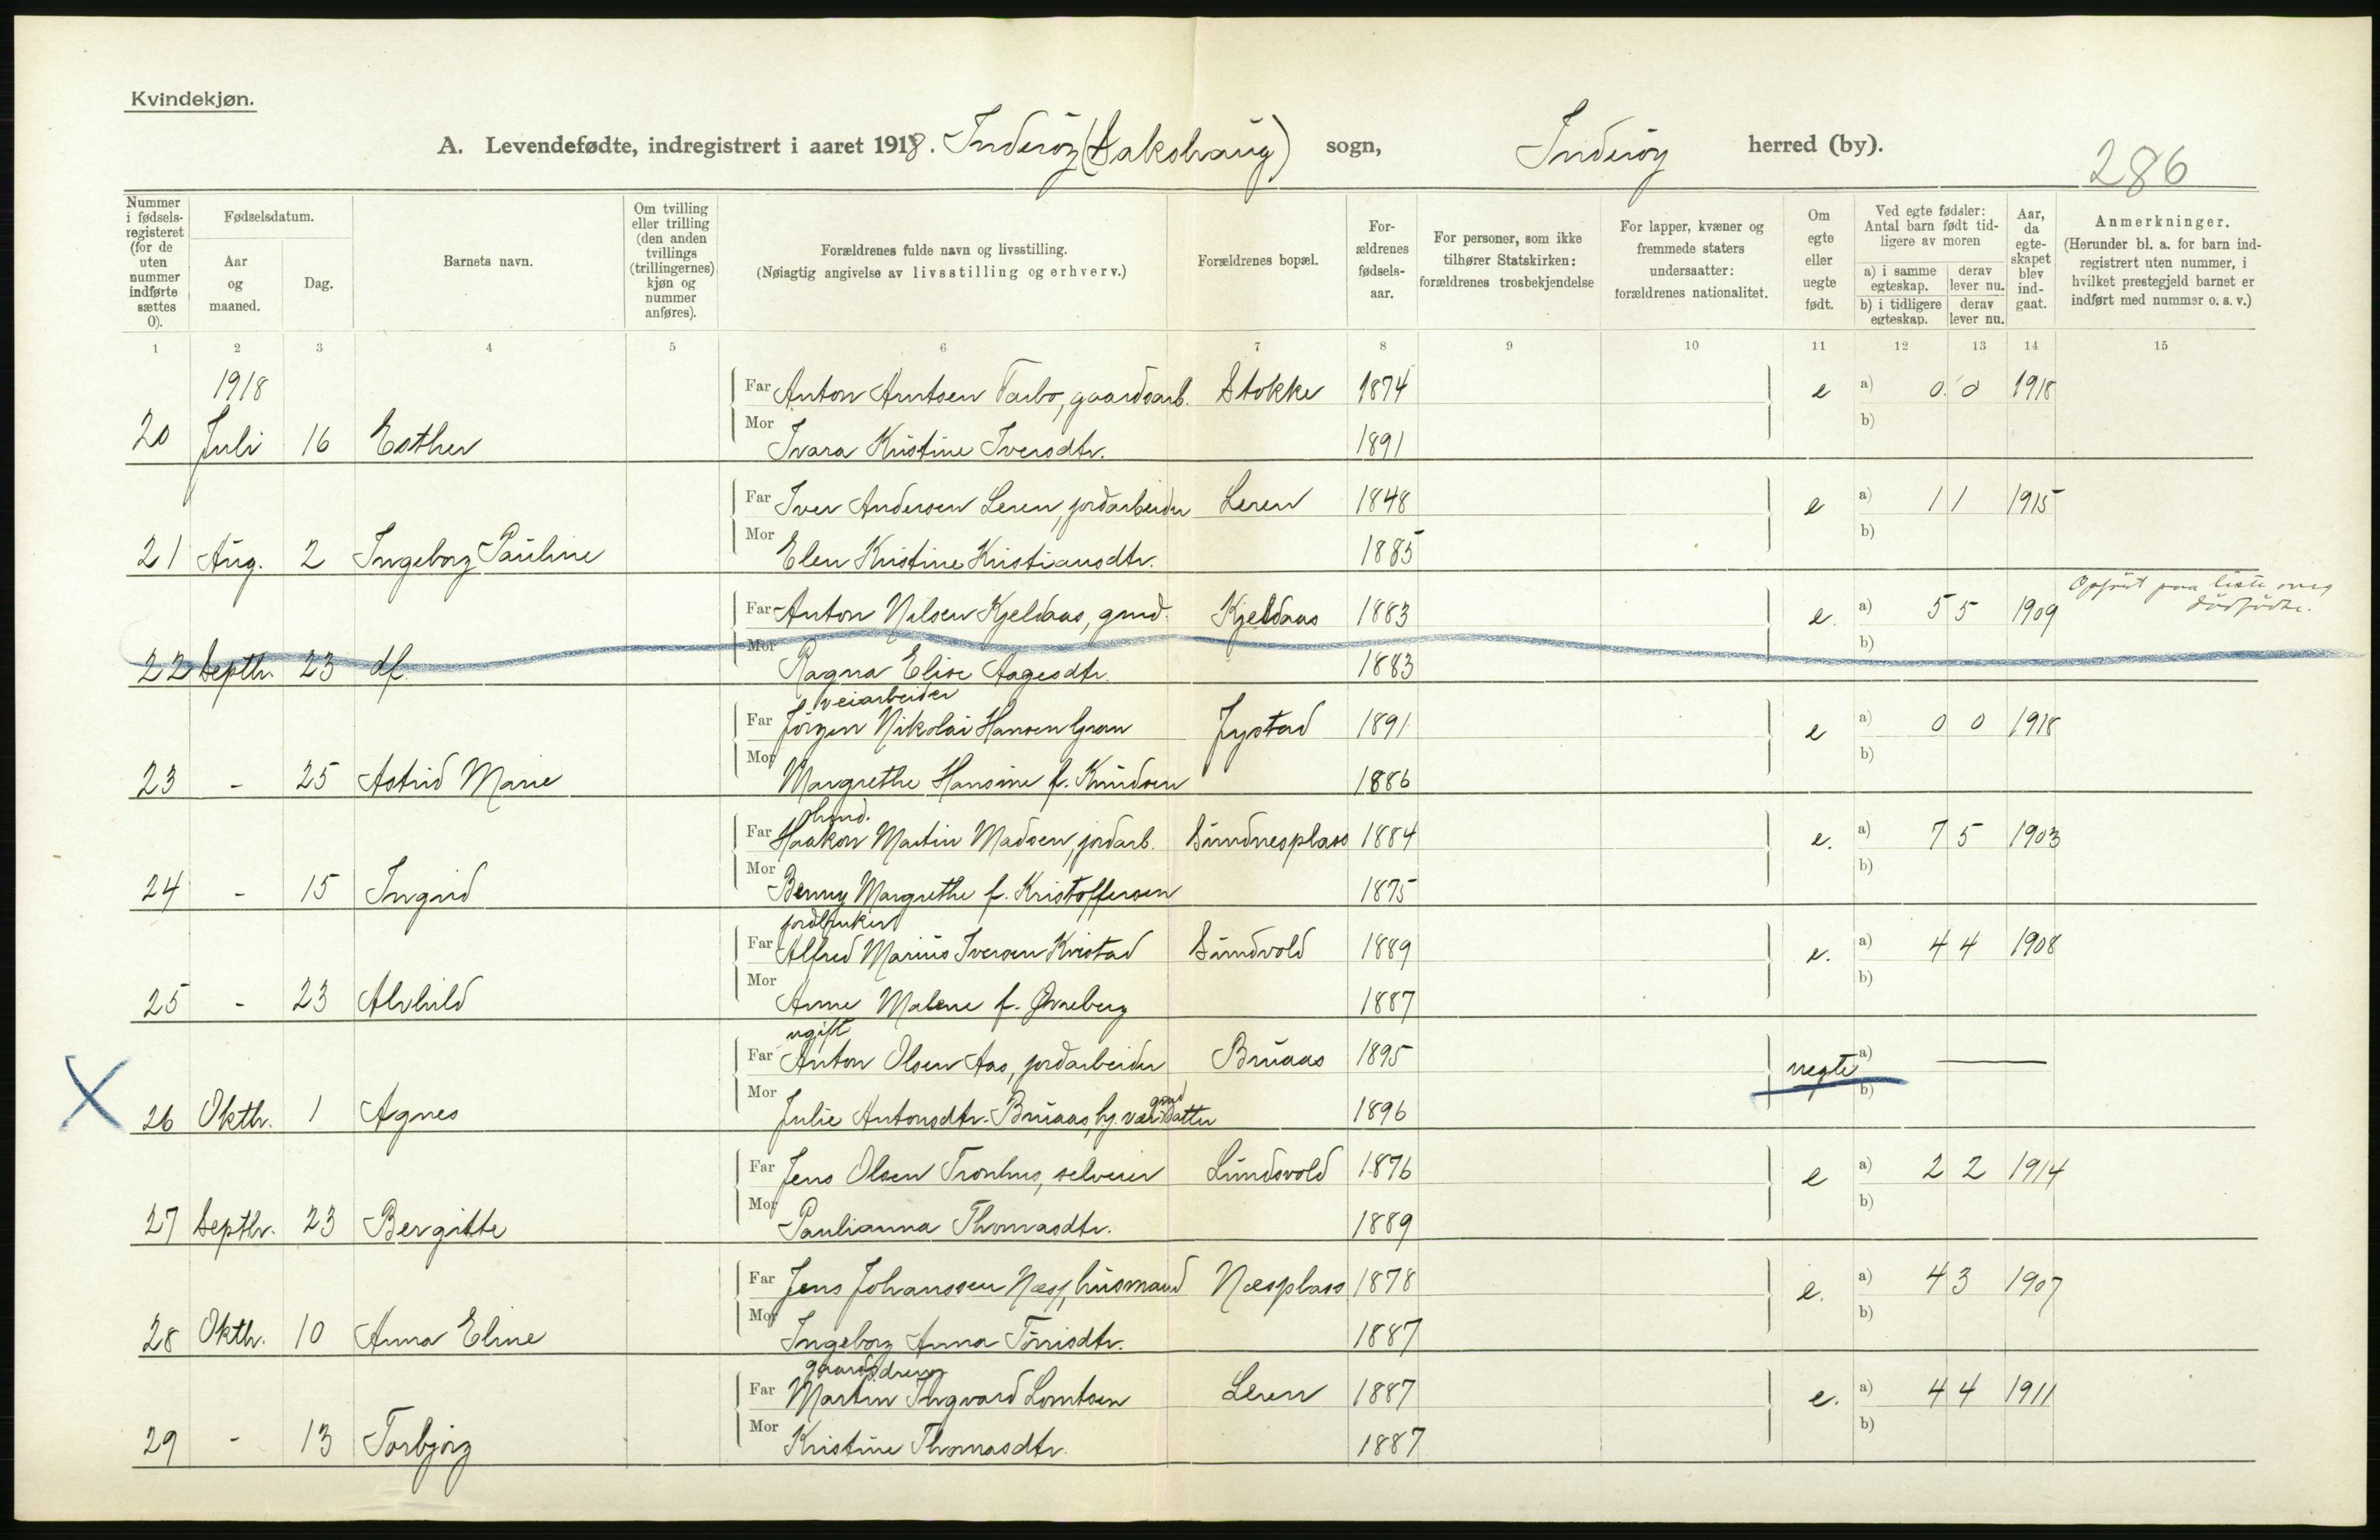 Kvindekjøn.
A. Levendefødte, indregistrert i aaret 1918. Inderöy (Sakshaug) sogn, Inderöy herred (by).
286
Nummer i fødsels-registeret (for de uten nummer indførte sættes 0).
Fødselsdatum.
Aar og maaned.
Dag.
Barnets navn.
Om tvilling eller trilling (den anden tvillings (trillingernes) kjøn og nummer anføres).
Forældrenes fulde navn og livsstilling.
(Nøiagtig angivelse av livsstilling og erhverv.)
Forældrenes bopæl.
For-ældrenes fødsels-aar.
For personer, som ikke tilhører Statskirken: forældrenes trosbekjendelse
For lapper, kvæner og fremmede staters undersaatter: forældrenes nationalitet.
Om egte eller uegte født.
Ved egte fødsler: Antal barn født tid-ligere av moren
a) i samme egteskap. derav lever nu.
b) i tidligere egteskap. derav lever nu.
Aar, da egte-skapet blev ind-gaat.
Anmerkninger.
(Herunder bl. a. for barn ind-registrert uten nummer, i hvilket prestegjeld barnet er indført med nummer o. s. v.)
1 2 3 4 5 6 7 8 9 10 11 12 13 14 15
1918
Far Anton Arntsen Tarbo, gaardsarb. Stokke 1874 e a) 0 0 1918
b)
20 Juli 16 Esther Mor Ivara Kristine Iversdtr. 1891
Far Iver Andersen Leren, jordarbeider Leren 1848 e a) 1 1 1915
b)
21 Aug. 2 Ingeborg Pauline Mor Elen Kristine Kristiansdtr. 1885
Opfört paa liste over dödfödte.
Far Anton Nilsen Kjeldaas, gmd. Kjeldaas 1883 e. a) 5 5 1909
b)
22 Septbr. 23 df. Mor Ragna Elise Aagesdtr. 1883
veiarbeider
Far Jörgen Nikolai Hansen Gran Jystad 1891 e a) 0 0 1918
b)
23 - 25 Astrid Marie Mor Margrethe Hansine f. Knudsen 1886
Far Haakon Martin Madsen, jordarb. Sundnesplass 1884 e. a) 7 5 1903
b)
24 - 15 Ingrid Mor Benny Margrethe f. Kristoffersen 1875
jordbruker
Far Alfred Marius Iversen Kvistad Sundvold 1889 e. a) 4 4 1908
b)
25 - 23 Alvhild Mor Anne Malene f. Ørneberg 1887
ugift
Far Anton Olsen Aas, jordarbeider Bruaas 1895 uegte a) —
b)
26 Oktbr. 1 Agnes Mor Julie Antonsdtr. Bruaas, hj. vær. gmd datter 1896
Far Jens Olsen Tronhus, selveier Lundsvold 1876 e a) 2 2 1914
b)
27 Septbr. 23 Bergitte Mor Paulianna Thomasdtr. 1889
Far Jens Johanssen Næss, husmand Næsplass 1878 e. a) 4 3 1907
b)
28 Oktbr. 10 Anna Eline Mor Ingeborg Anna Törrisdtr. 1887
gaardsdreng
Far Martin Ingvard Lorntsen Leren 1887 e. a) 4 4 1911
b)
29 - 13 Torbjörg Mor Kristine Thomasdtr. 1887